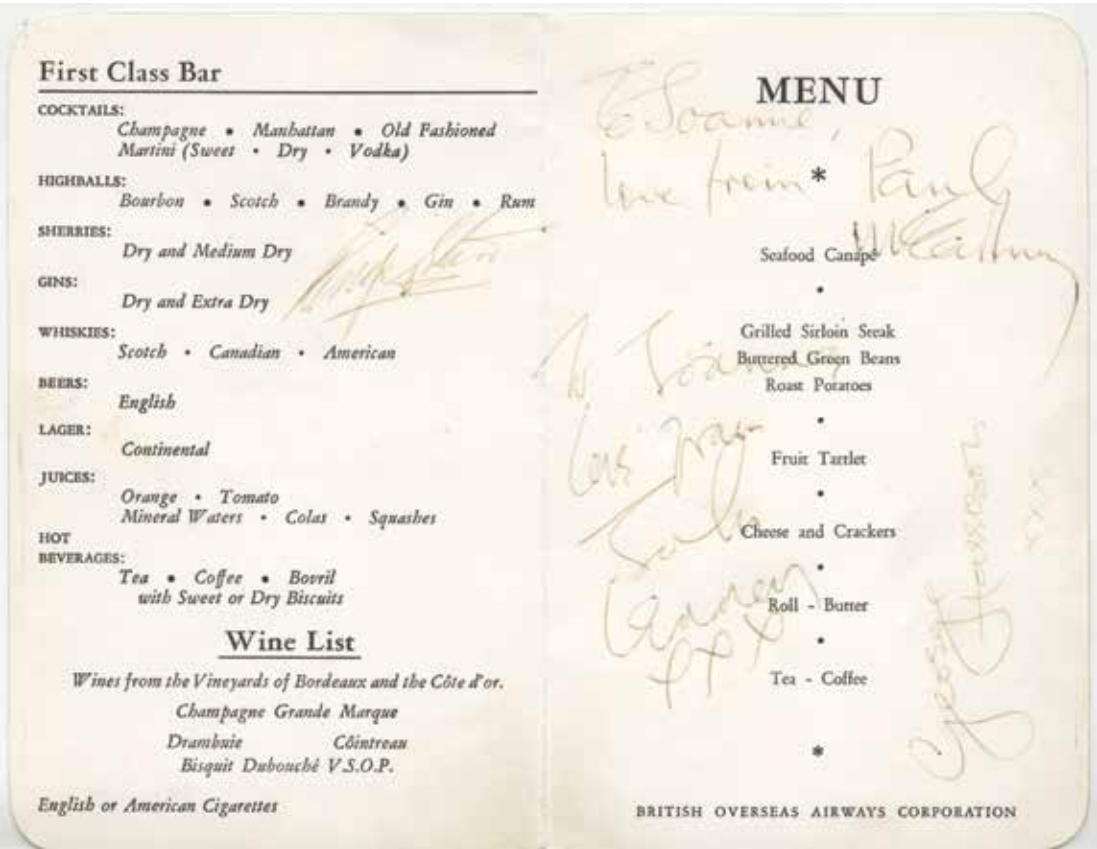 First Class Bar
COCKTAILS:
Champagne • Manhattan • Old Fashioned
Martini (Sweet • Dry • Vodka)
HIGHBALLS:
Bourbon • Scotch • Brandy • Gin • Rum
SHERRIES:
Dry and Medium Dry
GINS:
Dry and Extra Dry
WHISKIES:
Scotch • Canadian • American
BEERS:
English
LAGER:
Continental
JUICES:
Orange • Tomato
Mineral Waters • Colas • Squashes
HOT
BEVERAGES:
Tea • Coffee • Bovril
with Sweet or Dry Biscuits
Wine List
Wines from the Vineyards of Bordeaux and the Côte d'or.
Champagne Grande Marque
Drambuie Côintreau
Bisquit Dubouché V.S.O.P.
English or American Cigarettes
Ringo Starr
MENU
To Joanne,
love from Paul
McCartney
*
Seafood Canapé
•
Grilled Sirloin Steak
Buttered Green Beans
Roast Potatoes
•
Fruit Tartlet
•
Cheese and Crackers
•
Roll - Butter
•
Tea - Coffee
*
To Joanne
love from
John
Lennon
xxx
George Harrison
xxx
BRITISH OVERSEAS AIRWAYS CORPORATION